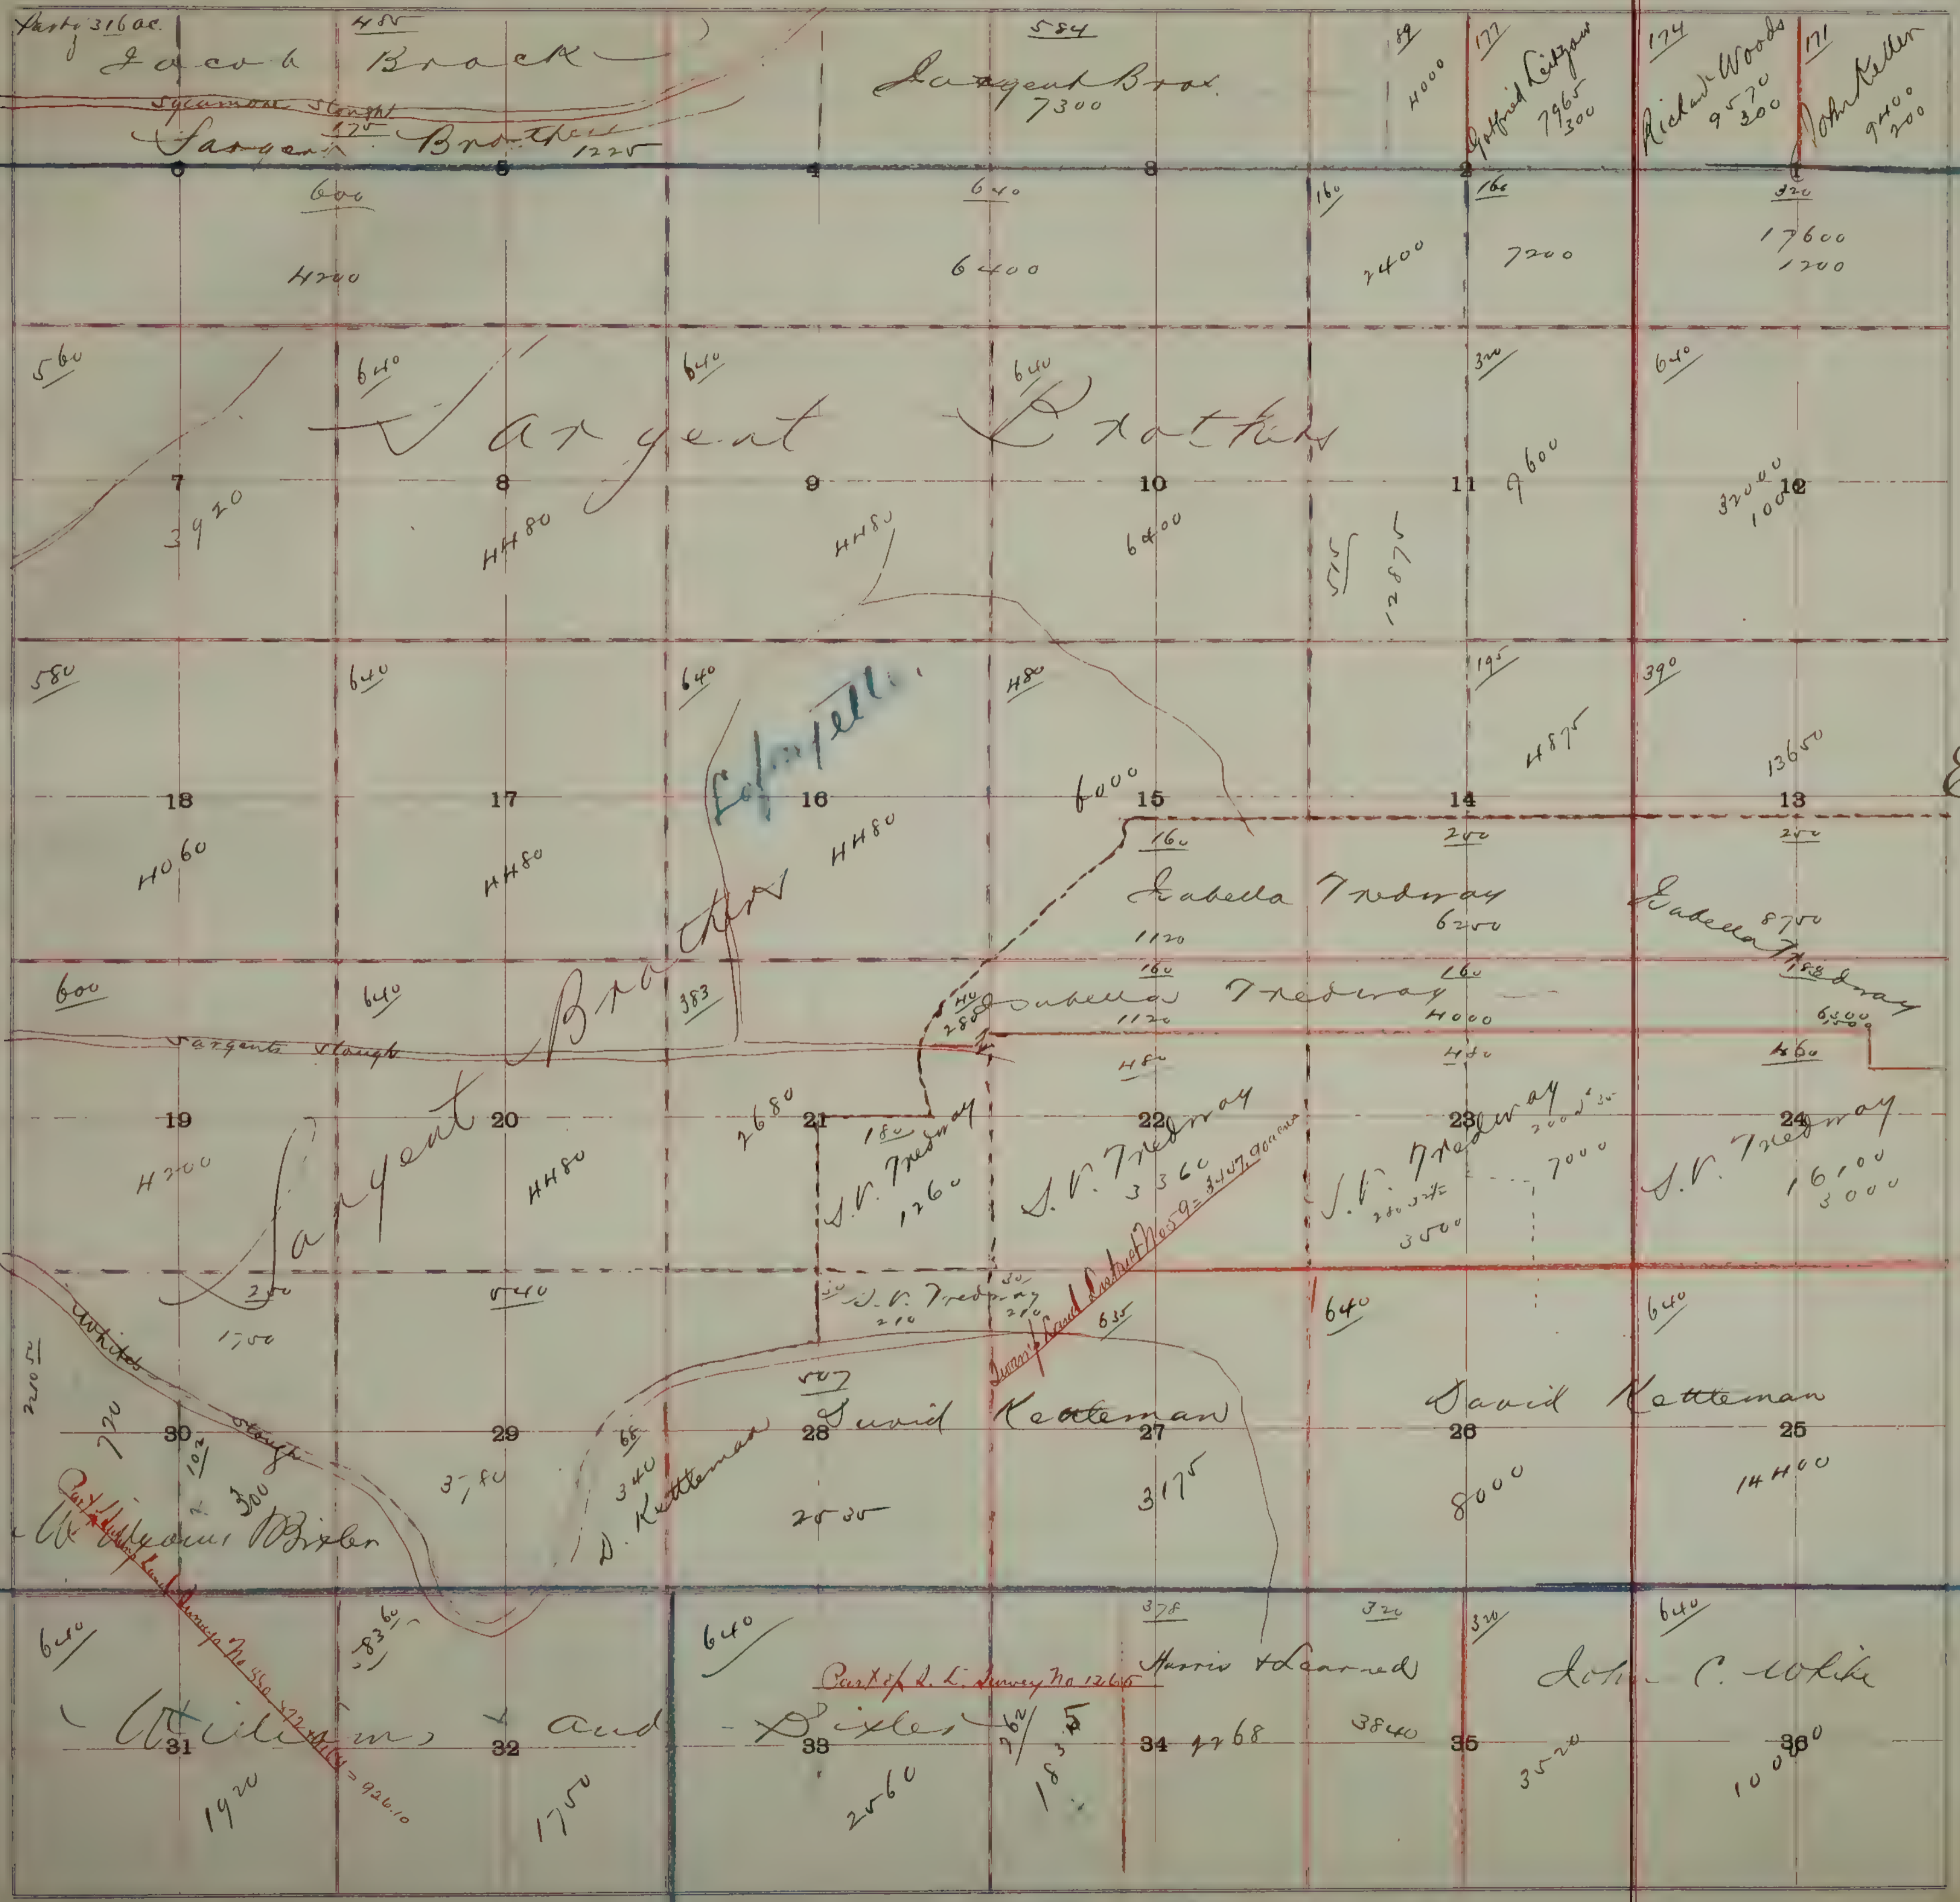 Part of 316 ac.
485
Jacob Brack
Sycamore Slough
175
Sargent Brothers
1225
584
Sargent Bros.
7300
89
4000
177
Gotfried Leitzow
7965
300
174
Richard Woods
9570
300
171
John Keller
9400
200
6
5
4
3
2
1
600
4200
640
6400
160
2400
160
7200
320
17600
1200
560
640
640
640
320
640
Sargent Brothers
7
8
9
10
11
12
3920
4480
4480
6400
515
12875
9600
32000
1000
580
640
640
480
195
390
6000
4875
13650
18
17
16
15
14
13
4060
4480
4480
160
200
250
Isabella Tredway
1120
6250
Isabella Tredway
8750
600
640
383
40
280
160
160
188
Isabella Tredway
1120
4000
6500
Sargents Slough
480
480
460
Sargent Brothers
19
20
21
22
23
24
4200
4480
2680
180
S.V. Tredway
1260
S.V. Tredway
3360
S.V. Tredway
7000
3500
S.V. Tredway
16100
3000
Swamp Land District No 59 =
250
1750
540
30
S.V. Tredway
30
210
210
635
640
640
Whites Slough
220 50
770
507
David Kettleman
David Kettleman
30
29
28
27
26
25
102
300
3780
68
340
D. Kettleman
2535
3175
8000
14400
Williams Bixler
640
640
378
320
320
640
Part of S. L. Survey No 1265
Harris & Learned
John C. White
Williams and Bixler
31
32
33
34
35
36
1920
1750
2560
262
1835
2268
3840
3520
10000
= 926.10